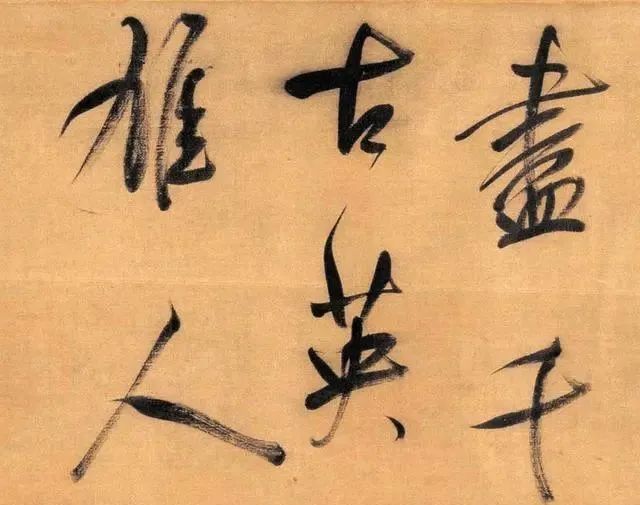 盡千
古英
雄人